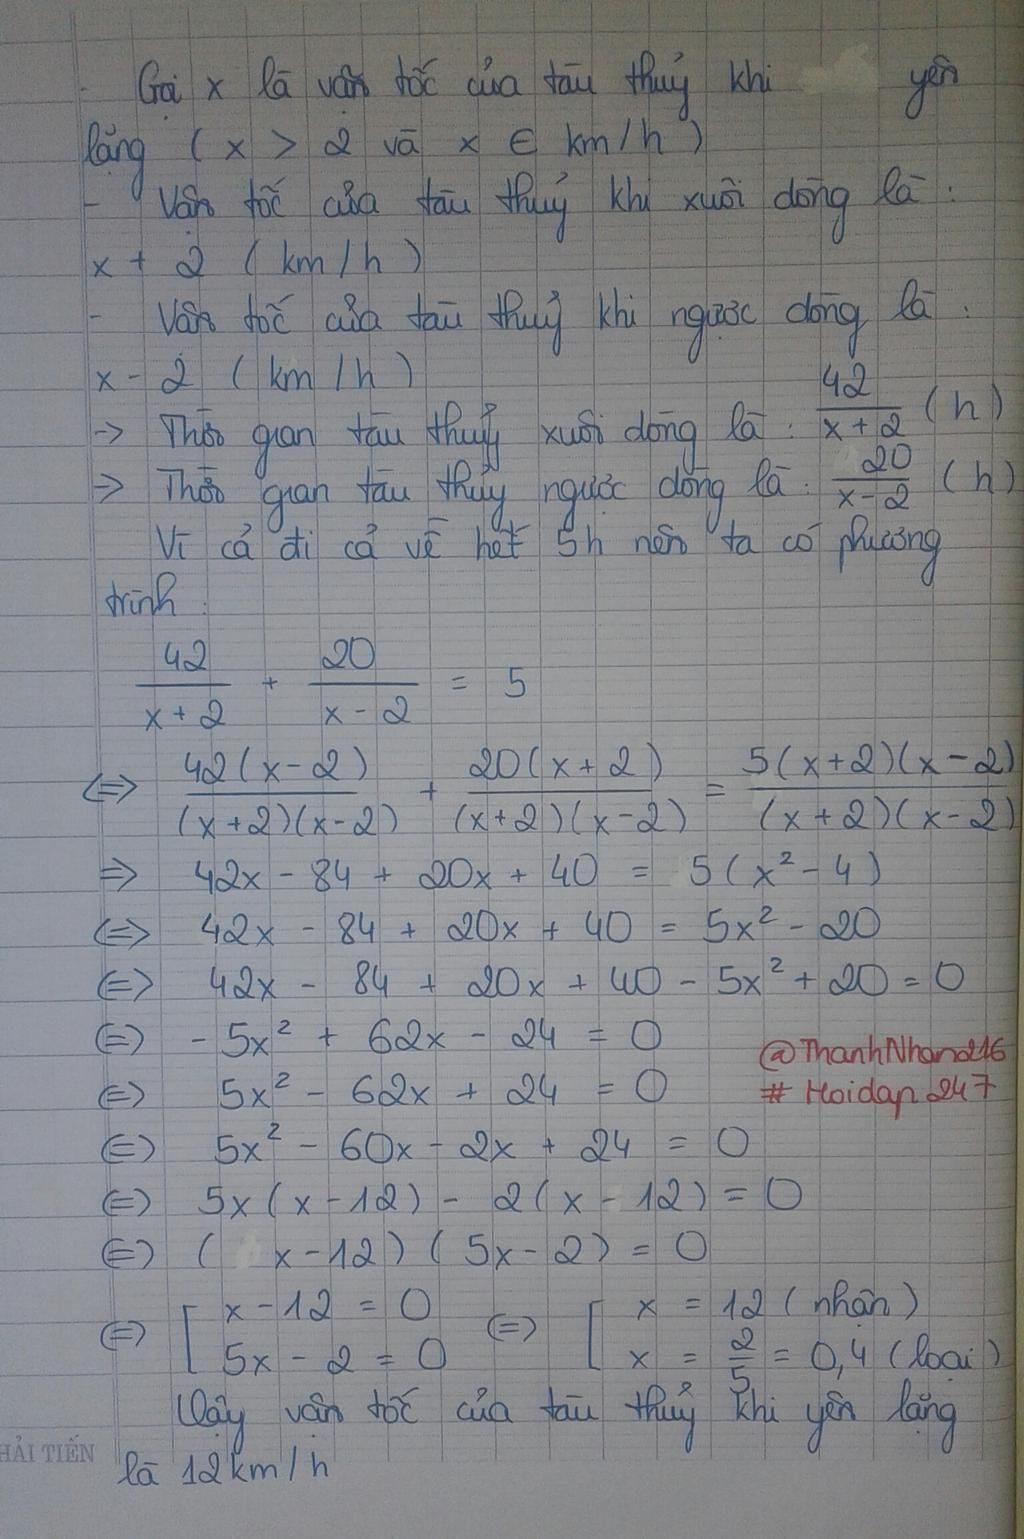 Gọi x là vận tốc của tàu thuỷ khi yên
lặng ( x > 2 và x ∈ km/h )
- Vận tốc của tàu thuỷ khi xuôi dòng là :
x + 2 ( km/h )
- Vận tốc của tàu thuỷ khi ngược dòng là :
x - 2 ( km/h )
-> Thời gian tàu thuỷ xuôi dòng là : 42/(x+2) (h)
=> Thời gian tàu thủy ngược dòng là : 20/(x-2) (h)
Vì cả đi cả về hết 5h nên ta có phương
trình :
42/(x+2) + 20/(x-2) = 5
<=> 42(x-2)/((x+2)(x-2)) + 20(x+2)/((x+2)(x-2)) = 5(x+2)(x-2)/((x+2)(x-2))
=> 42x - 84 + 20x + 40 = 5(x² - 4)
<=> 42x - 84 + 20x + 40 = 5x² - 20
<=> 42x - 84 + 20x + 40 - 5x² + 20 = 0
<=> - 5x² + 62x - 24 = 0
@ThanhNhan216
<=> 5x² - 62x + 24 = 0
# Hoidap247
<=> 5x² - 60x - 2x + 24 = 0
<=> 5x(x-12) - 2(x-12) = 0
<=> (x-12)(5x-2) = 0
<=> [ x-12 = 0 <=> [ x = 12 (nhận)
5x - 2 = 0 x = 2/5 = 0,4 (loại)
Vậy vận tốc của tàu thuỷ khi yên lặng
là 12km/h
HẢI TIẾN